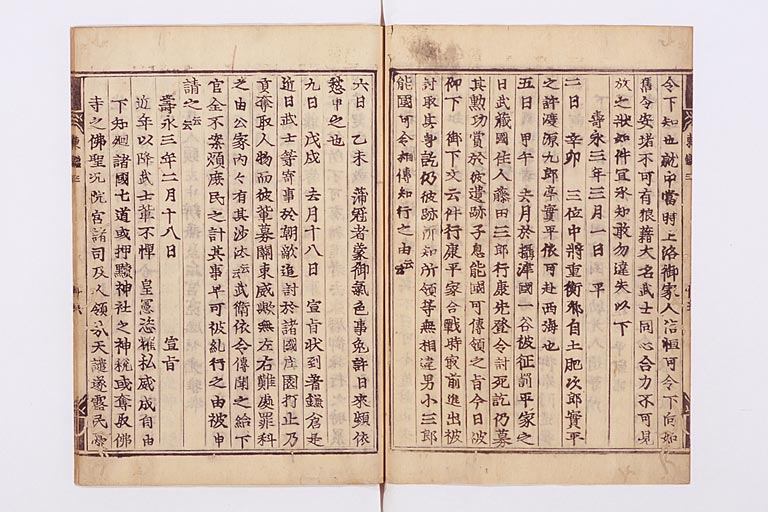 令下知也就中當時上洛御家人洽恒可令下向如
舊令安堵不可有狼藉大名武士同心合力不可見
放之状如件宜承知敢勿違失以下
壽永三年三月一日 平
二日 辛卯 三位中將重衡卿自土肥次郎實平
之許渡源九郎亭實平依可赴西海也
五日 甲午 去月於攝津國一谷被征罰平家之
日武藏國住人藤田三郎行康先登令討死訖仍募
其勲功賞於彼遺跡子息能國可傳領之旨今日被
仰下 御下文云件行康平家合戰時最前進出被
討取其身訖仍彼跡所知所領等無相違男小三郎
能國可令相傳知行之由云云
六日 乙未 蒲冠者蒙御氣色事免許日來頻依
愁申之也
九日 戊戌 去月十八日 宣旨状到著鎌倉是
近日武士等寄事於朝敵追討於諸國庄園打止乃
貢奪取人物而彼輩募關東威歟無左右難處罪科
之由公家内々有其沙汰云云武衛依令傳聞之給下
官全不案煩庶民之計其事早可被糺行之由被申
請之云云
壽永三年二月十八日 宣旨
近年以降武士輩不憚 皇憲恣耀私威成自由
下知廻諸國七道或押黷神社之神税或奪取佛
寺之佛聖况院宮諸司及人領哉天譴遂露民憂